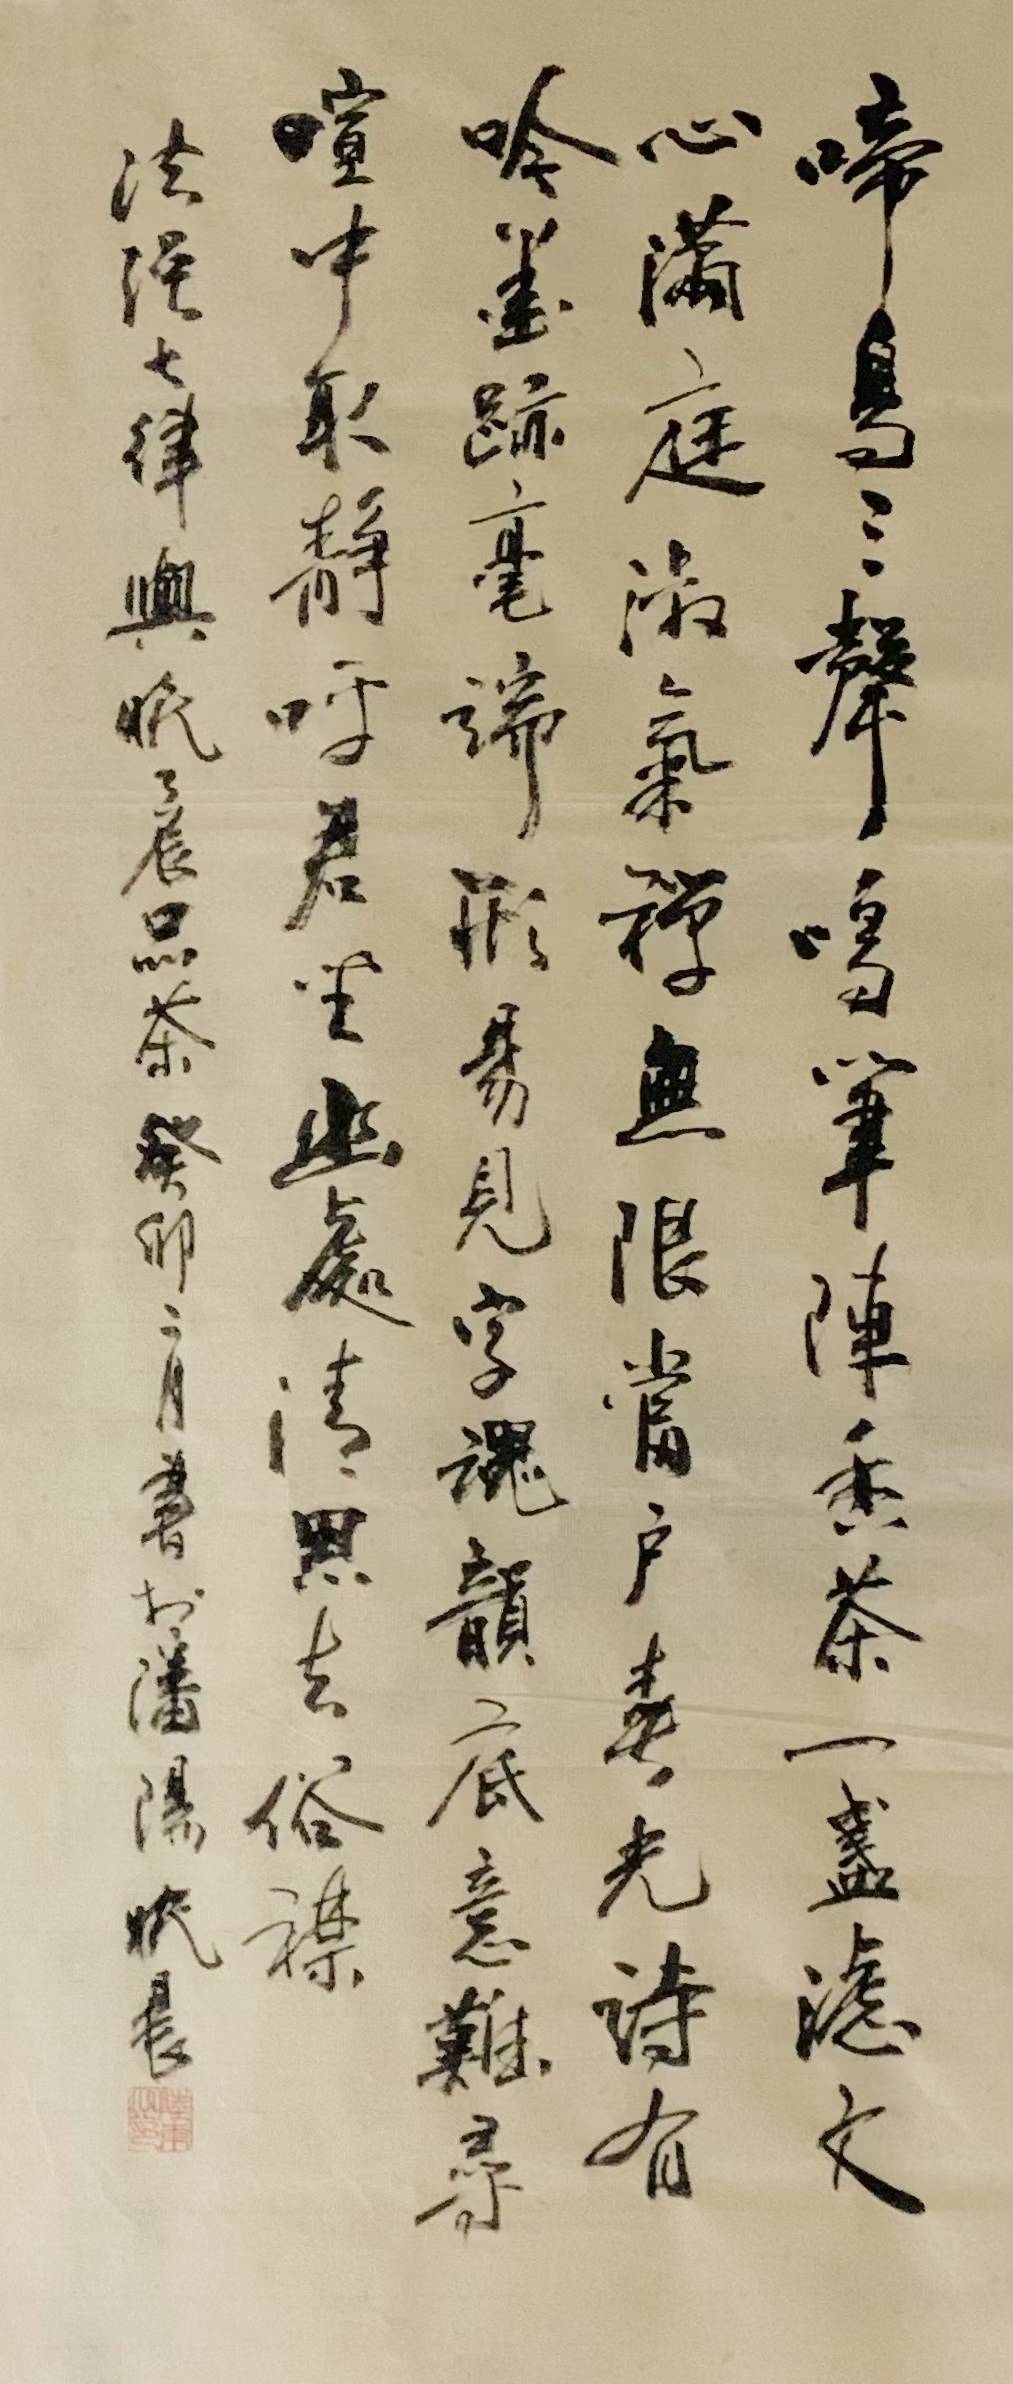 啼鳥三聲鳴筆陣香茶一盞濾文
心滿庭淑氣禪無限當户春光詩有
吟墨跡毫端形易見字魂韻底意難尋
喧中取静呼君坐幽處清思去俗襟
法强七律與晚晨品茶癸卯二月書於瀋陽晚晨